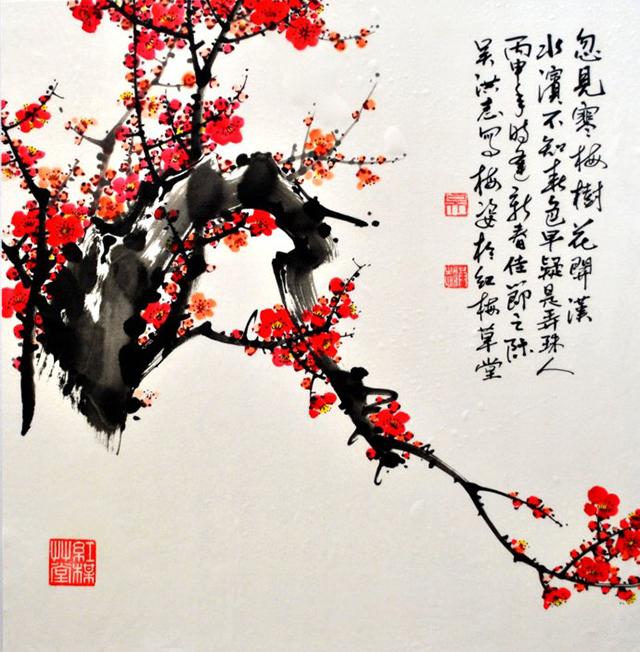 忽見寒梅樹花開漢
水濱不知春色早疑是弄珠人
丙申年時逢新春佳節之際
吴洪志写梅姿於紅梅草堂
紅楳
艸堂